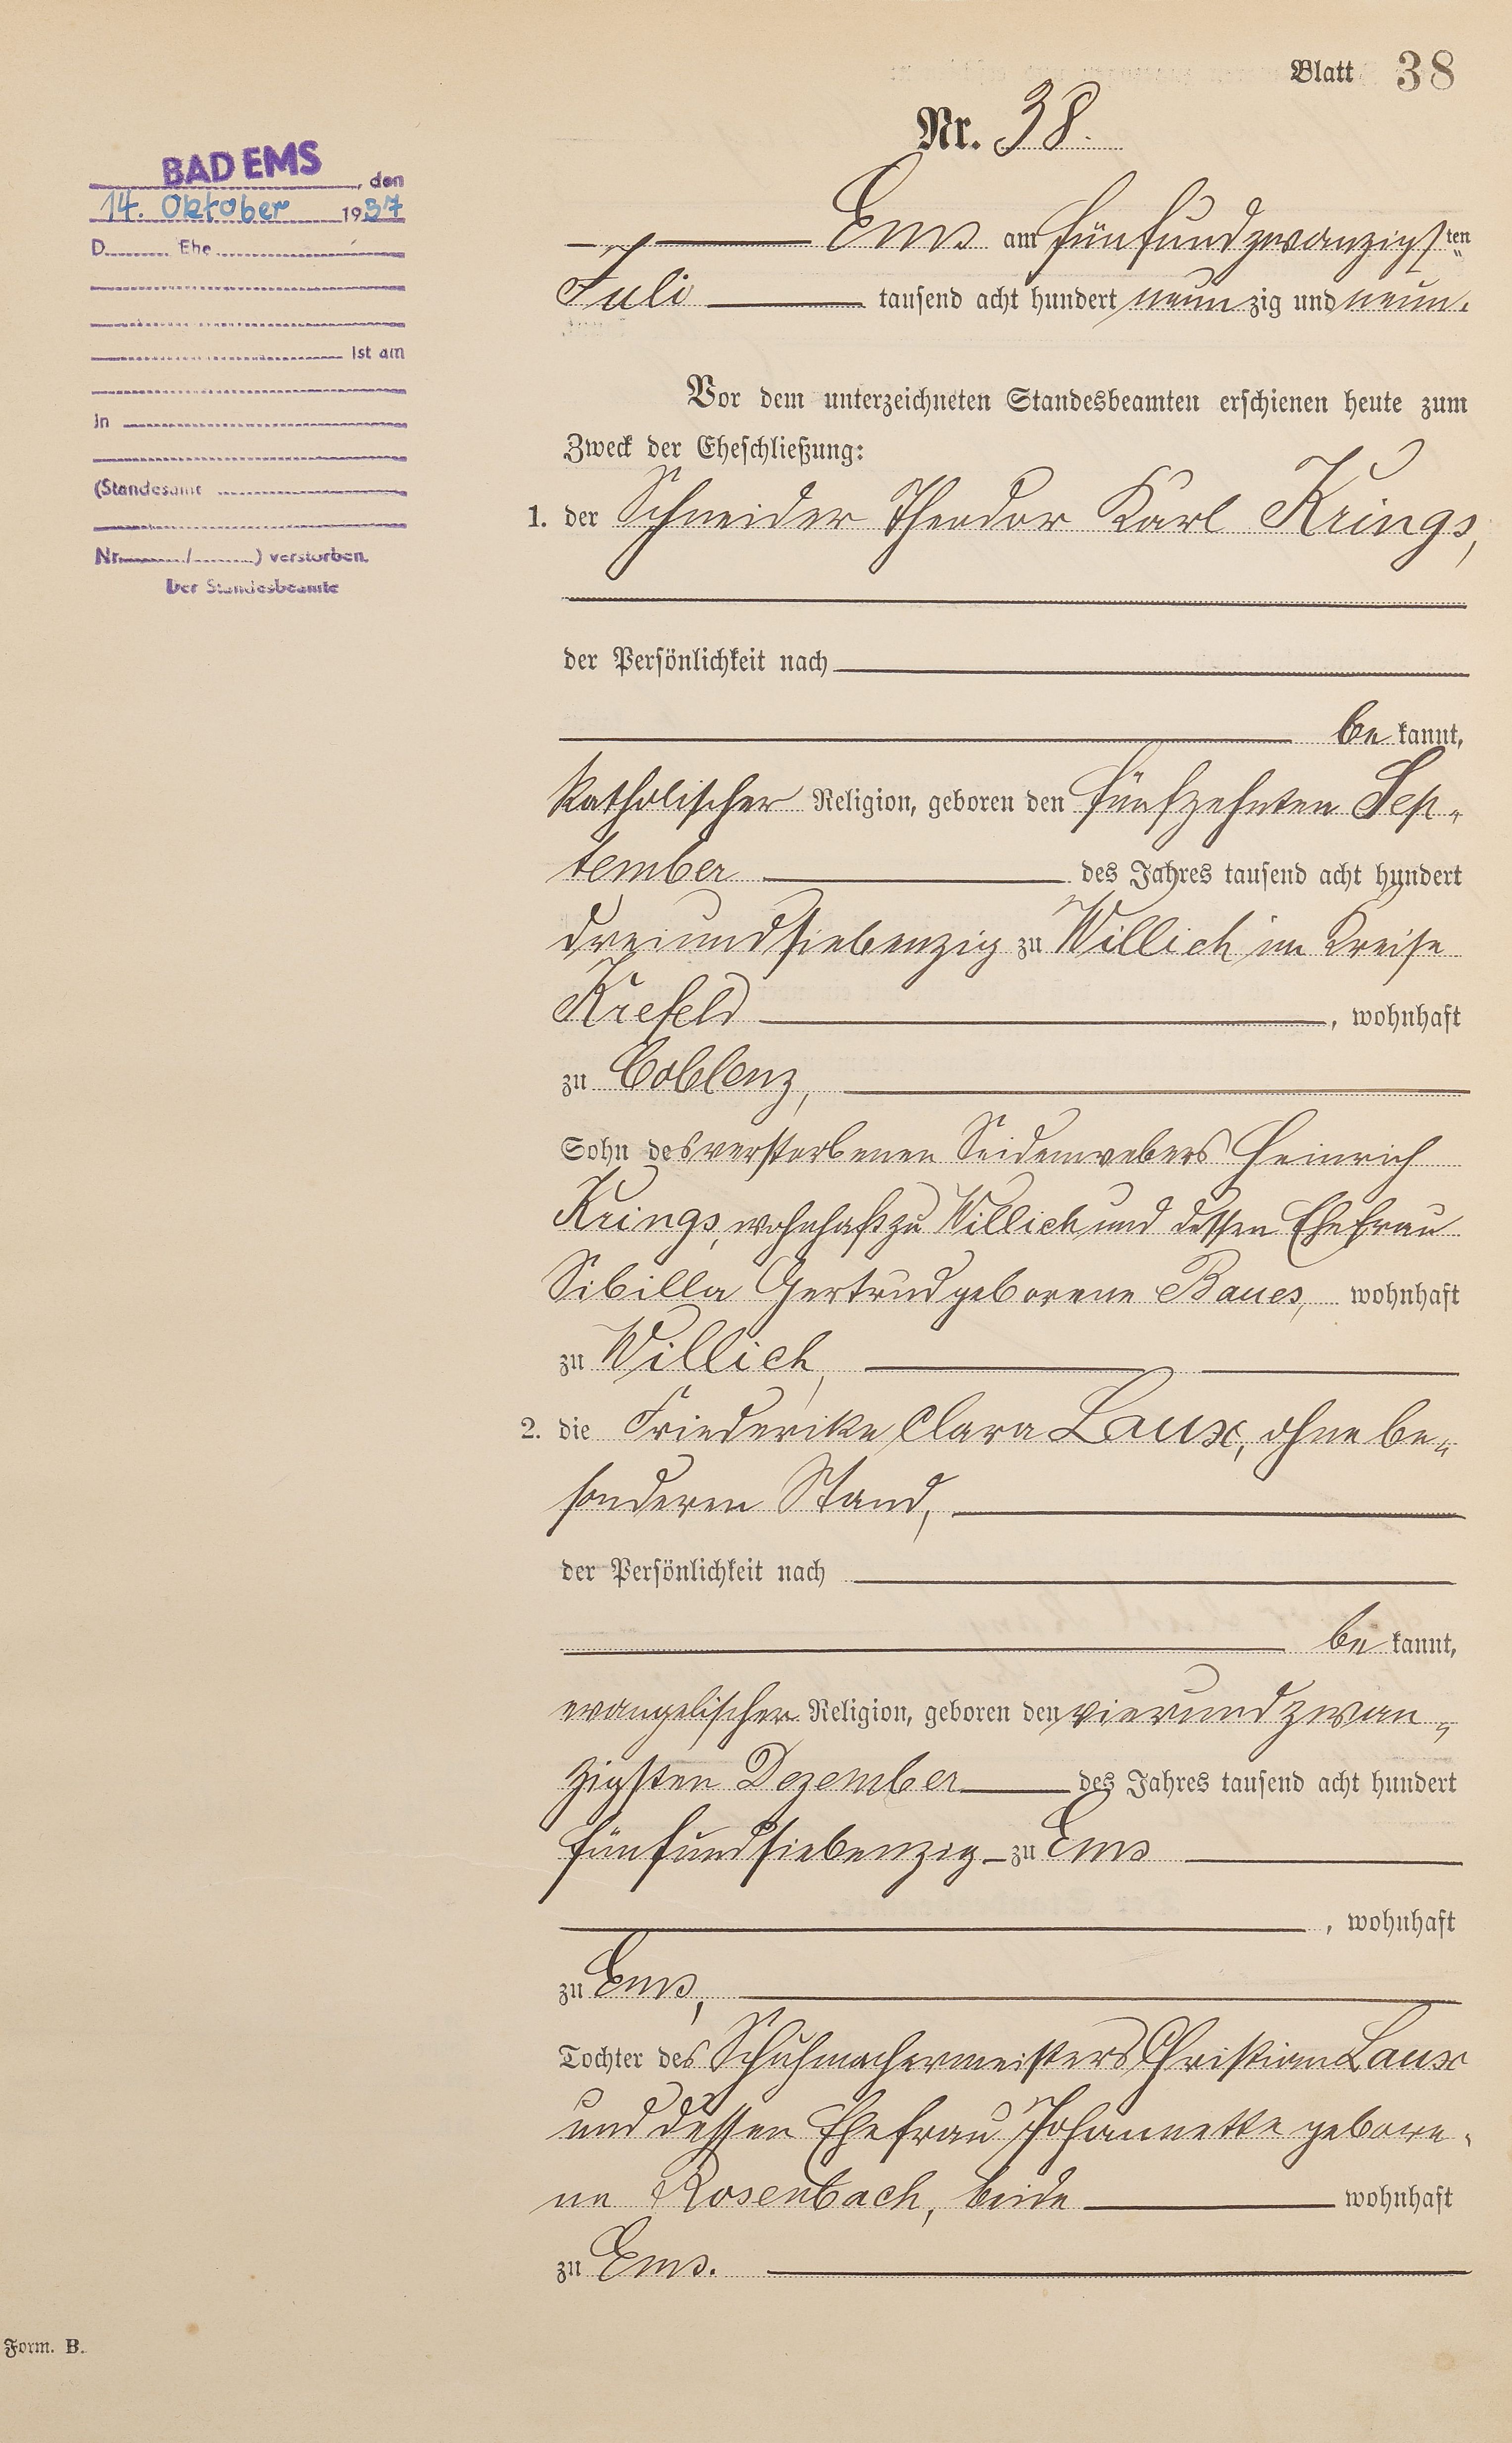 Blatt 38
Nr. 38.
BAD EMS, den
14. Oktober 1957
D. Ehe
ist am
in
(Standesamt
Nr. / ) verstorben.
Der Standesbeamte
Ems am fünfundzwanzigsten
Juli tausend acht hundert neunzig und neun.
Vor dem unterzeichneten Standesbeamten erschienen heute zum
Zweck der Eheschließung:
1. der Schneider Theodor Karl Krings,
der Persönlichkeit nach
bekannt,
katholischer Religion, geboren den fünfzehnten Sep-
tember des Jahres tausend acht hundert
dreiundsiebenzig zu Willich im Kreise
Krefeld, wohnhaft
zu Coblenz,
Sohn des verstorbenen Seidenwebers Heinrich
Krings, wohnhaft zu Willich und dessen Ehefrau
Sibilla Gertrud geborene Baues, wohnhaft
zu Willich,
2. die Friederike Clara Laux, ohne be-
sonderen Stand,
der Persönlichkeit nach
bekannt,
evangelischer Religion, geboren den vierundzwan-
zigsten Dezember des Jahres tausend acht hundert
fünfundsiebenzig zu Ems
, wohnhaft
zu Ems,
Tochter des Schuhmachermeisters Christian Laux
und dessen Ehefrau Johannette gebore-
ne Rosenbach, beide wohnhaft
zu Ems.
Form. B.